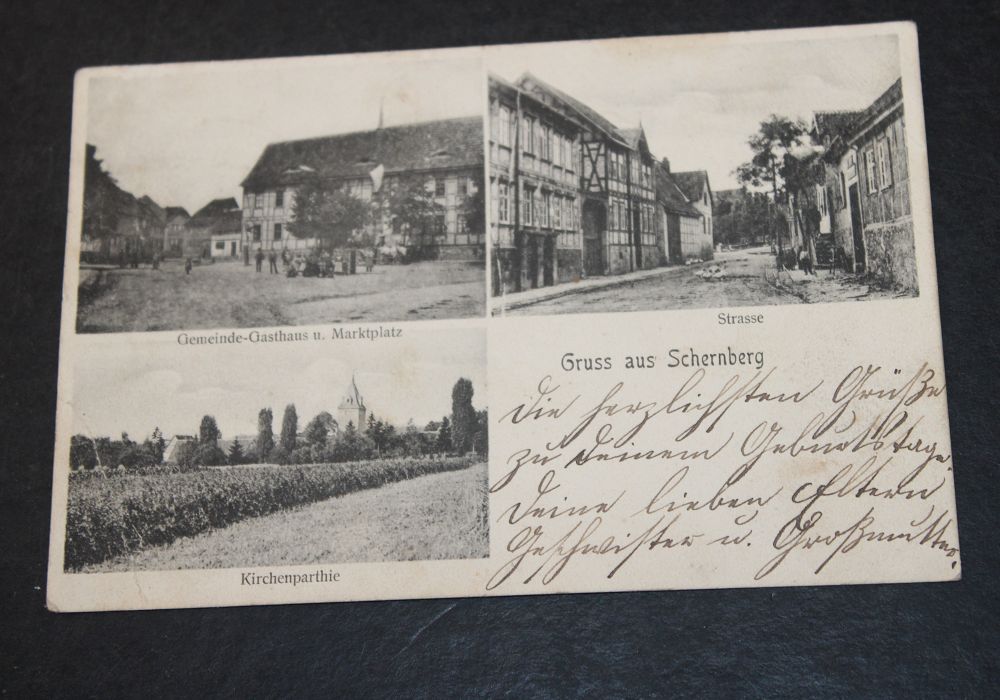 Gemeinde-Gasthaus u. Marktplatz
Strasse
Kirchenparthie
Gruss aus Schernberg
Die herzlichsten Grüße
zu Deinem Geburtstage.
Deine lieben Eltern
Geschwister u. Großmutter.